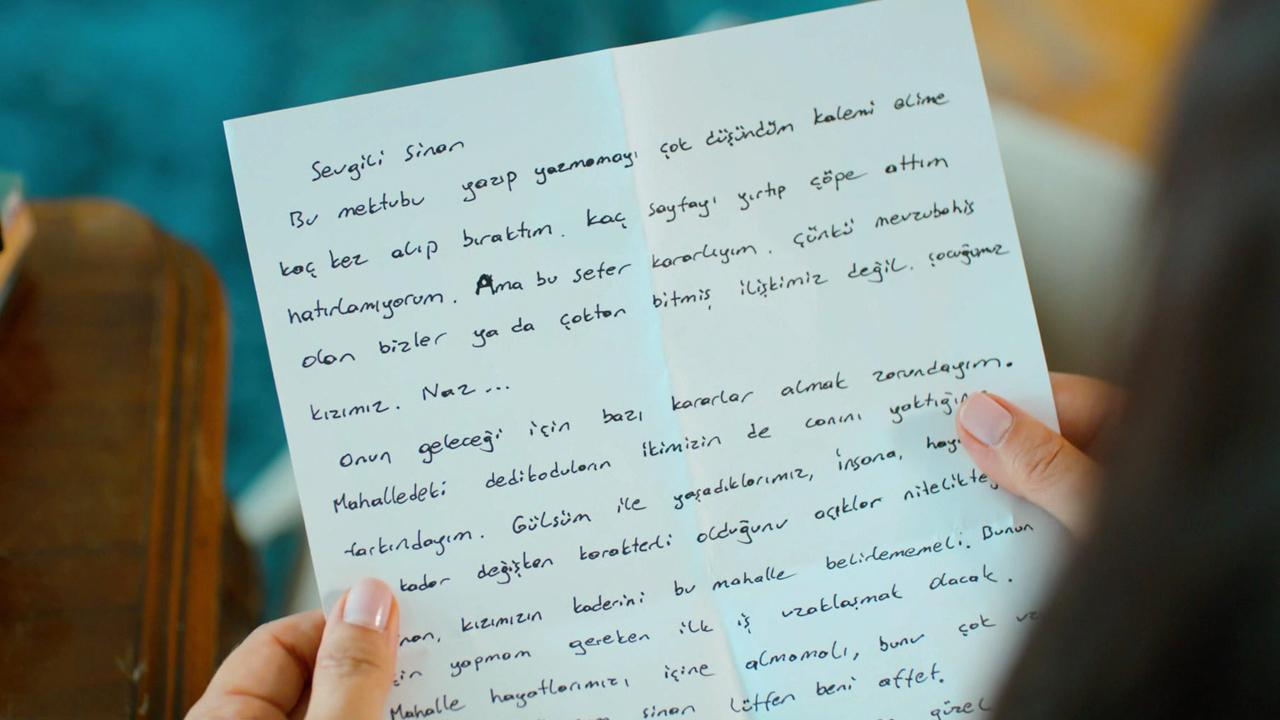 Sevgili Sinan
Bu mektubu yazıp yazmamayı çok düşündüm kalemi elime
kaç kez alıp bıraktım. Kaç sayfayı yırtıp çöpe attım
hatırlamıyorum. Ama bu sefer kararlıyım. Çünkü mevzubahis
olan bizler ya da çoktan bitmiş ilişkimiz değil. çocuğumuz
kızımız. Naz...
Onun geleceği için bazı kararlar almak zorundayım.
Mahalledeki dedikoduların ikimizin de canını yaktığın
farkındayım. Gülsüm ile yaşadıklarımız, insana, hay
kadar değişken karakterli olduğunu açıklar nitelikte
nan, kızımızın kaderini bu mahalle belirlememeli. Bunun
in yapmam gereken ilk iş uzaklaşmak olacak.
Mahalle hayatlarımızı içine almamalı, bunu çok
sinan lütfen beni affet.
güzel